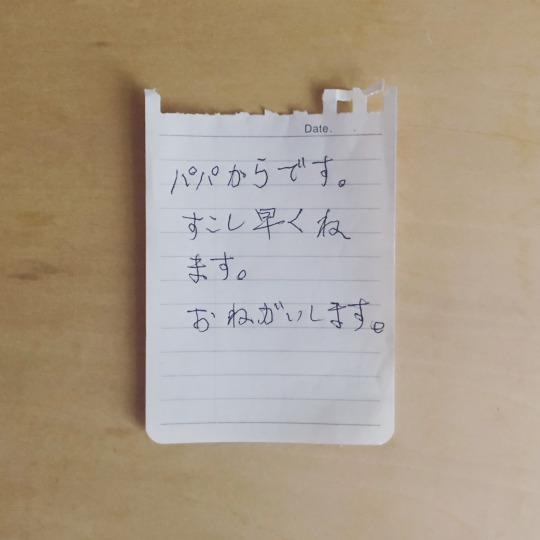 Date.
パパからです。
すこし早くね
ます。
おねがいします。